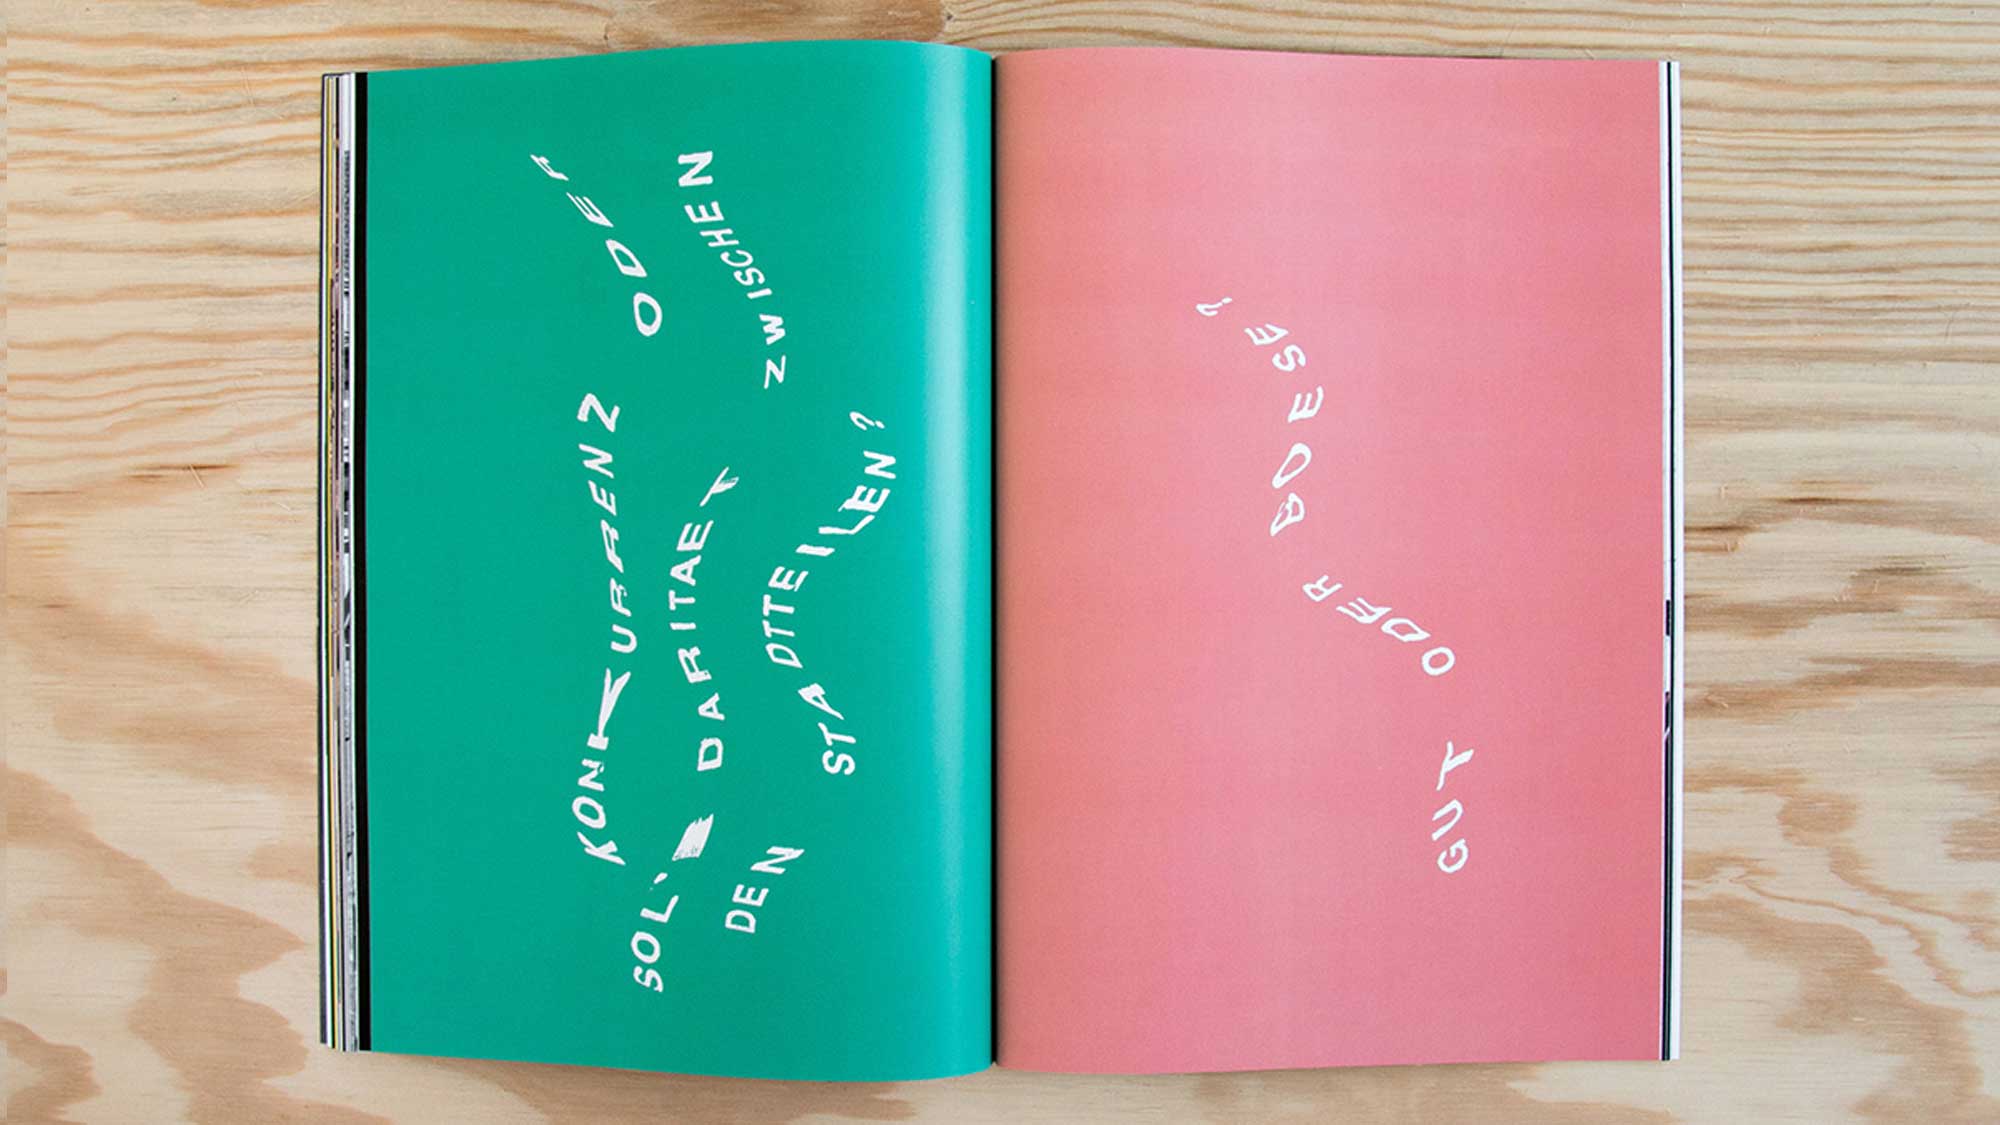 KONKURRENZ ODER
SOLIDARITAET ZWISCHEN
DEN STADTTEILEN?
GUT ODER BOESE?